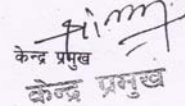 केन्द्र प्रमुख
केन्द्र प्रमुख